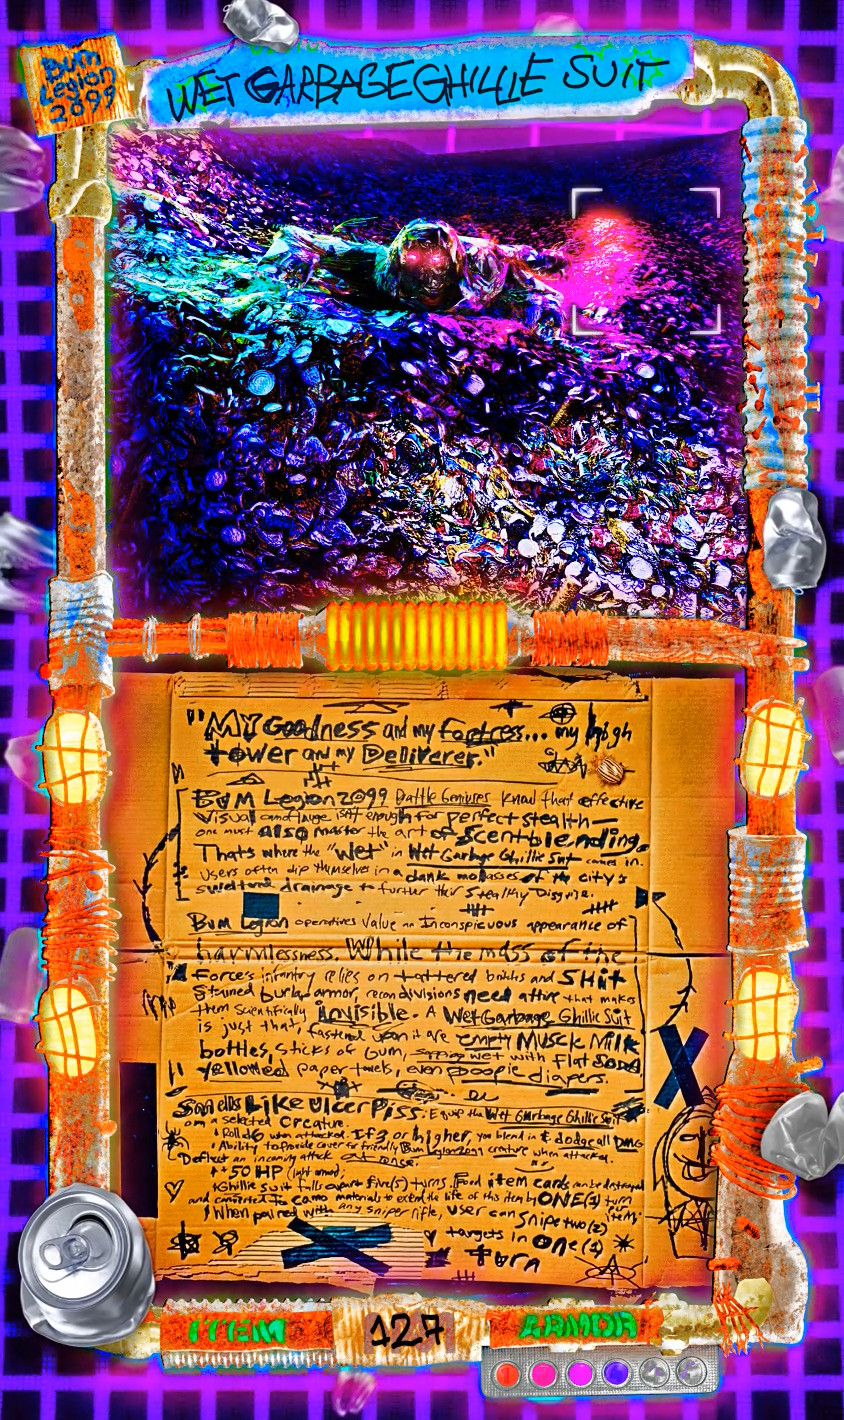 Bum
Legion
2099
WET GARBAGE GHILLIE SUIT
"My Goodness and my fortress... my high
tower and my Deliverer."
BUM Legion 2099 Battle Geniuses know that effective
visual camoflauge isn't enough for perfect stealth—
one must also master the art of scentblending.
Thats where the "wet" in Wet Garbage Ghillie Suit comes in.
Users often dip themselves in a dank molasses of the city's
drainage to further their stealthy Disguise.
Bum Legion operatives value an Inconspicuous appearance of
harmlessness. While the mass of the
Force's infantry relies on tattered britches and SHit
Stained burlap armor, recon divisions need attire that makes
them scientifically invisible. A Wet Garbage Ghillie Suit
is just that, fastened upon it are empty Muscle Milk
bottles, sticks of Gum, sopping wet with flat Soda
yellowed paper towels, even poopie diapers.
Smells Like Ulcer Piss: Equip the Wet Garbage Ghillie Suit
on a selected creature.
Roll d6 when attacked. If 3 or higher, you blend in & dodge all DMG
Ability to provide cover for friendly Bum Legion 2099 creature when attacked.
Deflect an incoming attack
+50 HP (light armor);
Ghillie suit falls apart five(5) turns. Food item cards can be destroyed
and converted to camo materials to extend the life of this item by ONE(1) turn
per item.
When paired with any sniper rifle, user can snipe two(2)
targets in one(1)
turn
ITEM
127
ARMOR